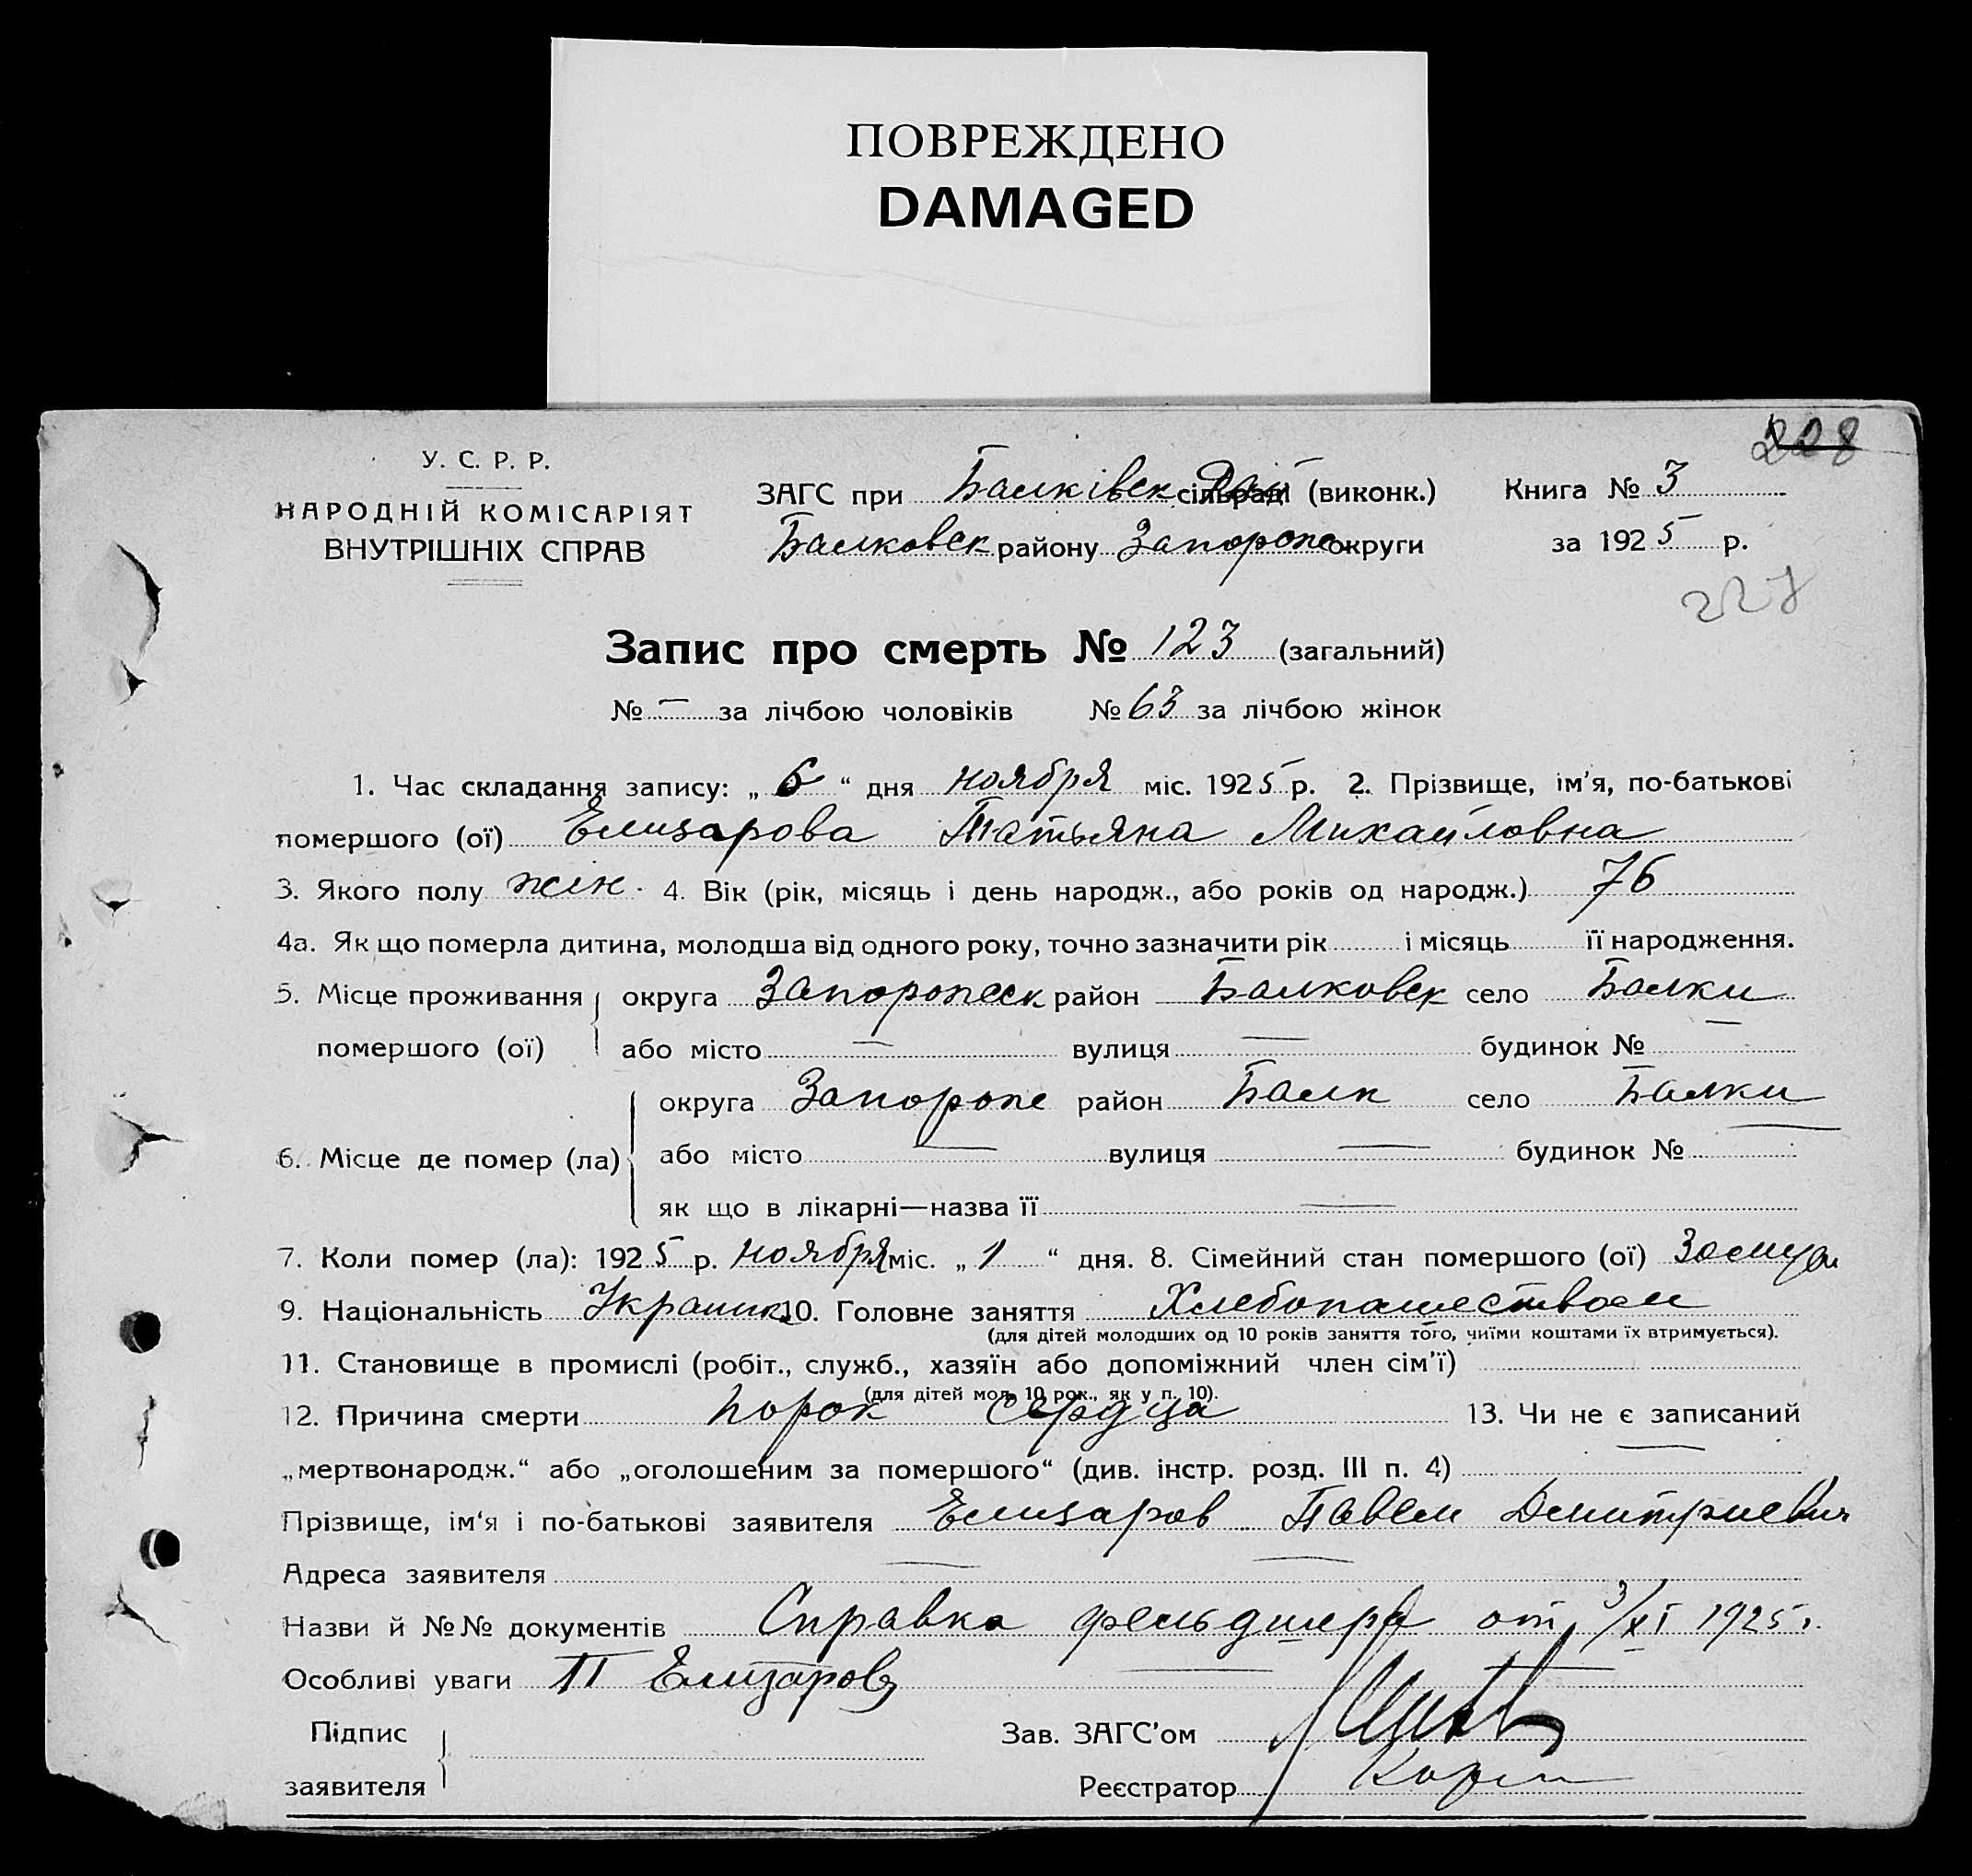 ПОВРЕЖДЕНО
DAMAGED
208
У. С. Р. Р.
НАРОДНІЙ КОМІСАРІЯТ
ВНУТРІШНІХ СПРАВ
ЗАГС при Балківск сільраді Рай (виконк.)
Балковск району Запорож округи
Книга № 3
за 1925 р.
227
Запис про смерть № 123 (загальний)
№ — за лічбою чоловіків № 63 за лічбою жінок
1. Час складання запису: „ 6 “ дня ноября міс. 1925 р. 2. Прізвище, ім'я, по-батькові
помершого (ої) Елизарова Татьяна Михайловна
3. Якого полу жін. 4. Вік (рік, місяць і день народж., або років од народж.) 76
4а. Як що померла дитина, молодша від одного року, точно зазначити рік і місяць її народження.
5. Місце проживання помершого (ої) округа Запорожск район Балковск село Балки
або місто — вулиця — будинок № —
6. Місце де помер (ла) округа Запорож район Балк село Балки
або місто — вулиця — будинок № —
як що в лікарні—назва її —
7. Коли помер (ла): 1925 р. ноября міс. „ 1 “ дня. 8. Сімейний стан помершого (ої) Замуж
9. Національність Украинк. 10. Головне заняття Хлебопашеством
(для дітей молодших од 10 років заняття того, чиїми коштами їх втримується).
11. Становище в промислі (робіт., служб., хазяїн або допоміжний член сім'ї)
(для дітей мол. 10 рок., як у п. 10).
12. Причина смерти порок сердца 13. Чи не є записаний
„мертвонародж.“ або „оголошеним за помершого“ (див. інстр. розд. III п. 4) —
Прізвище, ім'я і по-батькові заявителя Елизаров Павел Дмитриевич
Адреса заявителя — —
Назви й №№ документів Справка фельдшера от 3/XI 1925 г.
Особливі уваги П Елизаров — —
Підпис заявителя
Зав. ЗАГС'ом
Реєстратор